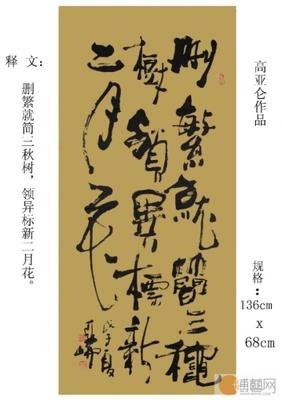 释文：
删繁就简三秋树，领异标新二月花。
删繁就简三秋
树领异标新
二月花
戊子夏
高亚仑作品
规格：
136cm
x
68cm
博艺网